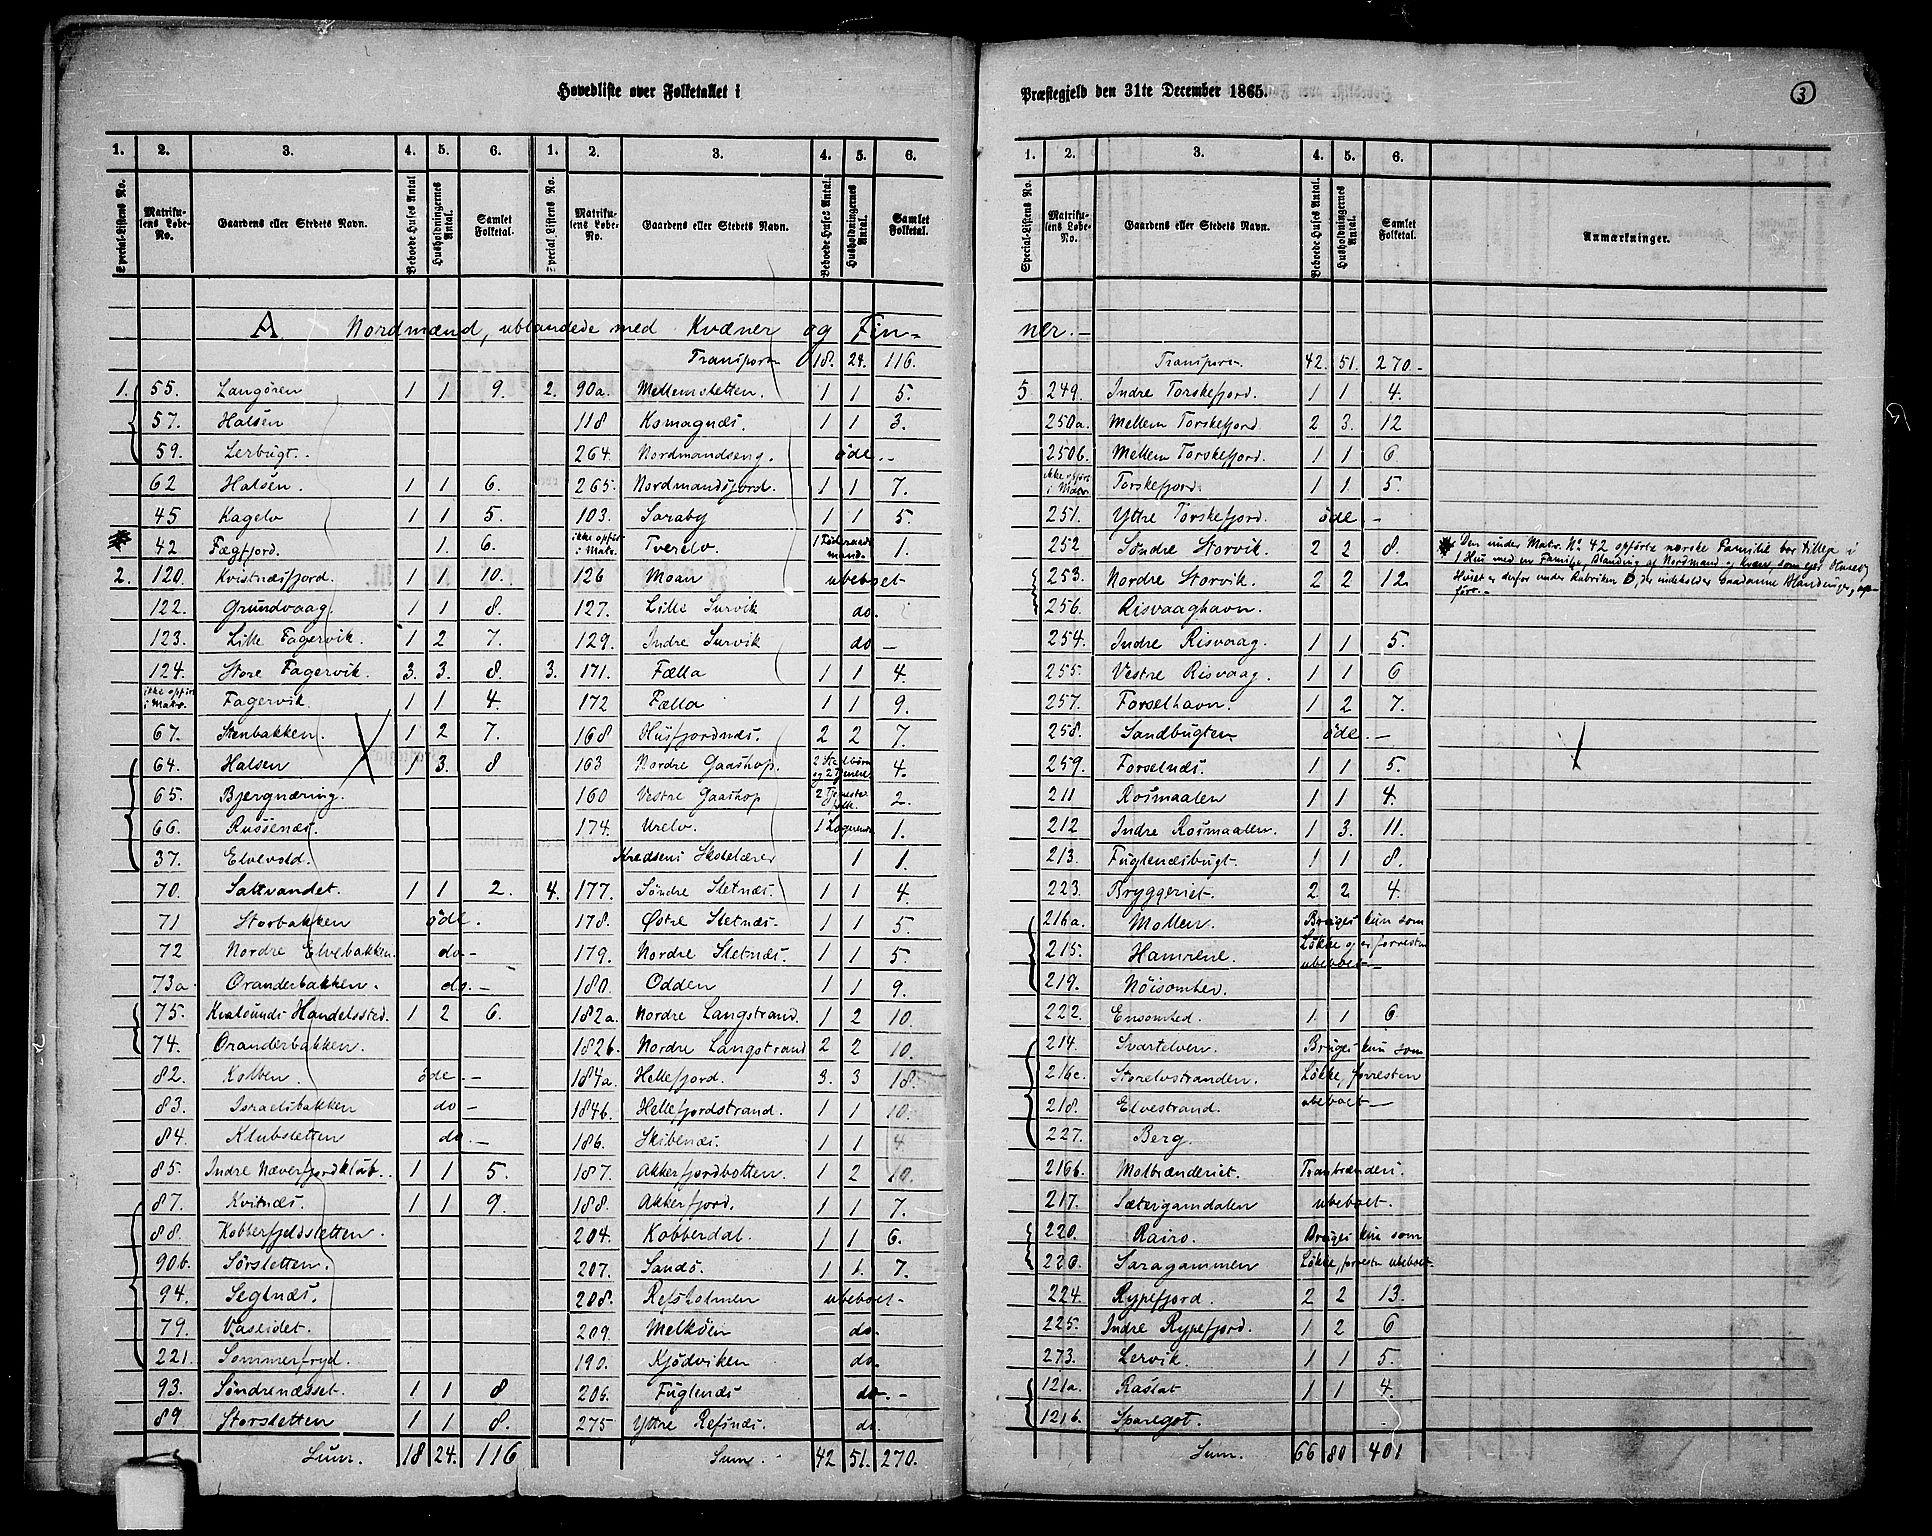 Hovedliste over Folketallet i Præstegjeld den 31te December 1865.
3
1. 2. 3. 4. 5. 6. 1. 2. 3. 4. 5. 6.
Special-Listens No. Matrikulens Løbe-No. Gaardens eller Stedets Navn. Beboede Huses Antal Husholdningernes Antal. Samlet Folketal. Special-Listens No. Matrikulens Løbe-No. Gaardens eller Stedets Navn. Beboede Huses Antal. Husholdningernes Antal. Samlet Folketal.
A Nordmænd, ublandede med Kvæner og Fin-
Transport 18. 24. 116.
1. 55. Langören 1 1 9. 2. 90a. Mellemsletten. 1 1 5.
57. Halsen 118 Ksmagnæs. 1 1 3.
59. Lerbugt. 264. Nordmandseng. öde.-
62 Halsen. 1 1 6. 265. Nordmandsfjord. 1 1 7.
45 Kagelv 1 1 5. 103. Saraby 1 1 5.
42 Fægfjord. 1 6. ikke opført i Matr. Tverelv. 1 mand. 1.
2. 120. Kvistnæsfjord. 1 1 10. 126 Moan ubeboet
122. Grundvaag. 1 1 8. 127. Lille Survik do.
123. Lille Fagervik. 1 2 7. 129. Indre Survik do-
124. Store Fagervik. 3. 3. 8 3. 171. Fælla 1 1 4.
ikke opført i Matr. Fagervik. 1 1 4. 172 Fælla 1 1 9.
67. Stenbakken 1 2 7. 168 Husfjordnæs. 2 2 7.
64. Halsen 1 3. 8 163 Nordre Gaashop. 4.
65. Bjergnæring. 160 Vestre Gaashop 2 Tjenestefolk. 2.
66. Russenæs. 174. Urelv. 1 Logerende 1.
37. Elvevold. Kredsens Skolelærer 1 1.
70. Saltvandet. 1 1 2. 4. 177. Söndre Sletnæs. 1 1 4
71 Storbakken öde. 178. Østre Sletnæs. 1 1 5.
72 Nordre Elvebakken. do- 179. Nordre Sletnæs. 1 1 5.
73a Oranderbakken. do.- 180. Odden 1 1 9.
75. Kvalsunds Handelssted. 1 2 6. 182a. Nordre Langstrand. 1 2 10.
74. Oranderbakken. 182b. Nordre Langstrand 2 2 10.
82. Kolben. öde.- 184a. Hellefjord. 3. 3 18.
83. Israelsbakken do- 184b. Hellefjordstrand. 1 1 10
84. Klubsletten do.- 186. Skibenæs. 1 1 4
85. Indre Næverfjordklub. 1 1 5. 187. Akkerfjordbotten. 1 2 10.
87. Kvitnæs. 1 1 9. 188. Akkerfjord. 1 1 7.
88. Kobberfjeldsletten. 204. Kobberdal. 1 1 6.
90b. Sörsletten. 207. Sandö. 1 1. 7.
94. Seglnæs. 208. Refsholmen ubeboet-
79. Vaseidet. 209. Melköen do.
221. Sommerfryd. 190. Kjödviken do-
93. Söndrenæsset. 1 1 8 206. Fuglenæs do.-
89. Storsletten 1 1 8. 275 Yttre Refsnæs. do.
Sum. 18 24. 116 Sum. 42 51. 270.
1. 2. 3. 4. 5. 6.
Special-Listens No. Matrikulens Løbe-No. Gaardens eller Stedets Navn. Beboede Huses Antal. Husholdningernes Antal. Samlet Folketal. Anmærkninger.
ner.-
Transport 42. 51. 270.-
5 249. Indre Torskefjord. 1 1 4.
250a. Mellem Torskefjord 2 3. 12
250b. Mellem Torskefjord. 1 1 6
ikke opført i Matr. Torskefjord. 1 1 5.
251. Yttre Torskefjord. öde -
252 Söndre Storvik. 2 2 8. Den under Matr. No. 42 opförte norske Familie bor tilleie i
253. Nordre Storvik. 2 2 12. 1 Hus med en Familie, Blanding af Nordmand og Kvæn, som eier Huset.
256. Risvaaghavn. Huset er derfor under Rubriken D, der indeholder saadanne Blandinger, opfört.-
254. Indre Risvaag. 1 1 5.
255. Vestre Risvaag. 1 1 6
257. Forselhavn. 1 2 7.
258. Sandbugten öde.-
259. Forselnæs. 1 1 5.
211 Rosmaalen 1 1 4.
212 Indre Rosmaalen. 1 3. 11.
213. Fuglenæsbugt. 1 1 8.
223. Bryggeriet. 2 2 4.
216a. Mollen. Bruges kun som
215. Hamrene. Løkke og er forresten ubeboet-
219. Nöisomhed.
222. Ensomhed. 1 1 6
214. Svartelven. Bruges kun som
216c. Storelvstranden. Løkke, forresten
218. Elvestrand. ubeboet-
227. Berg.
216b. Molbrænderiet. Tranbrænderi.
217. Sætergamdalen ubeboet.
220. Rairo. Bruges kun som
226. Saragammen Løkke, forresten ubeboet-
224. Rypefjord. 2 2 13.
225. Indre Rypefjord. 1 2 6
273. Lervik. 1 1 5.
121a. Raslat 1 1 4.
121b. Sparegot.
Sum. 66 80 401